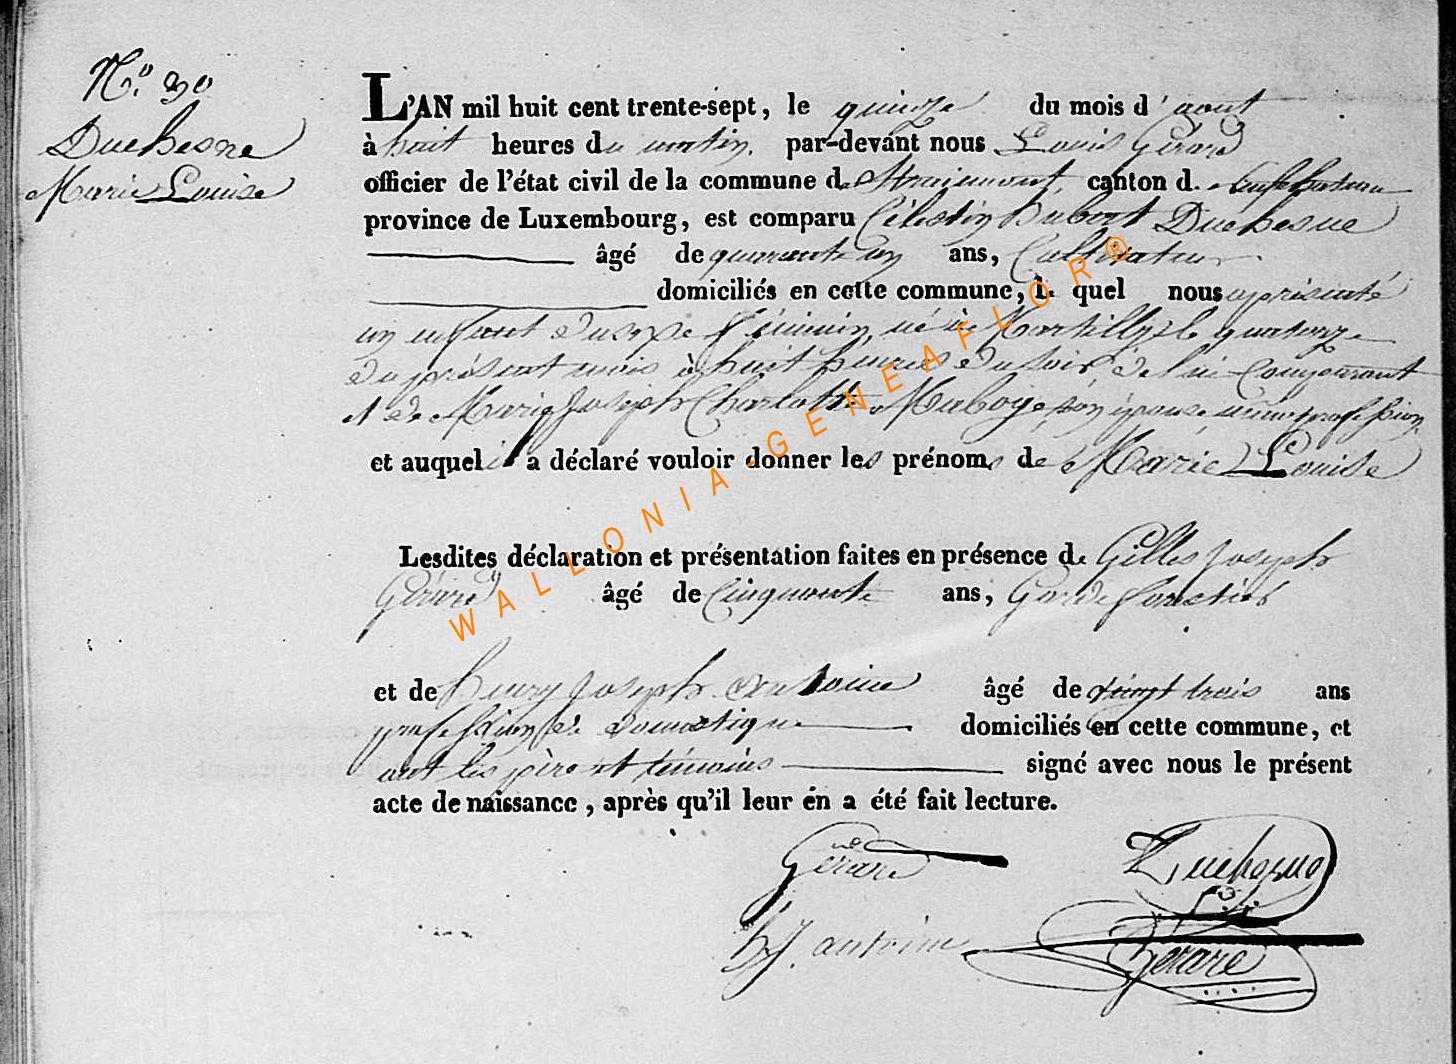 N.° 30
Duchesne
Marie Louise
L'AN mil huit cent trente-sept, le quinze du mois d'aout
à huit heures du matin, par-devant nous Louis Gérard
officier de l'état civil de la commune de Straimont, canton de Neufchateau
province de Luxembourg, est comparu Célestin hubert Duchesne
âgé de quarante un ans, Cultivateur
domiciliés en cette commune, le quel nous a présenté
un enfant du sexe féminin, né à Martilly, le quatorze
du présent mois à huit heures du soir de lui Comparant
et de Marie Joseph Charlotte son épouse, sans profession
et auquel il a déclaré vouloir donner les prénoms de Marie Louise
Lesdites déclaration et présentation faites en présence de Gilles Joseph
Gérard âgé de Cinquante ans, Garde forestier
et de henry Joseph antoine âgé de vingt trois ans
profession de domestique domiciliés en cette commune, et
ont les père et témoins signé avec nous le présent
acte de naissance, après qu'il leur en a été fait lecture.
Gérard Duchesne
h J. antoine Gérard
WALLONIA-GENEAFLOR®